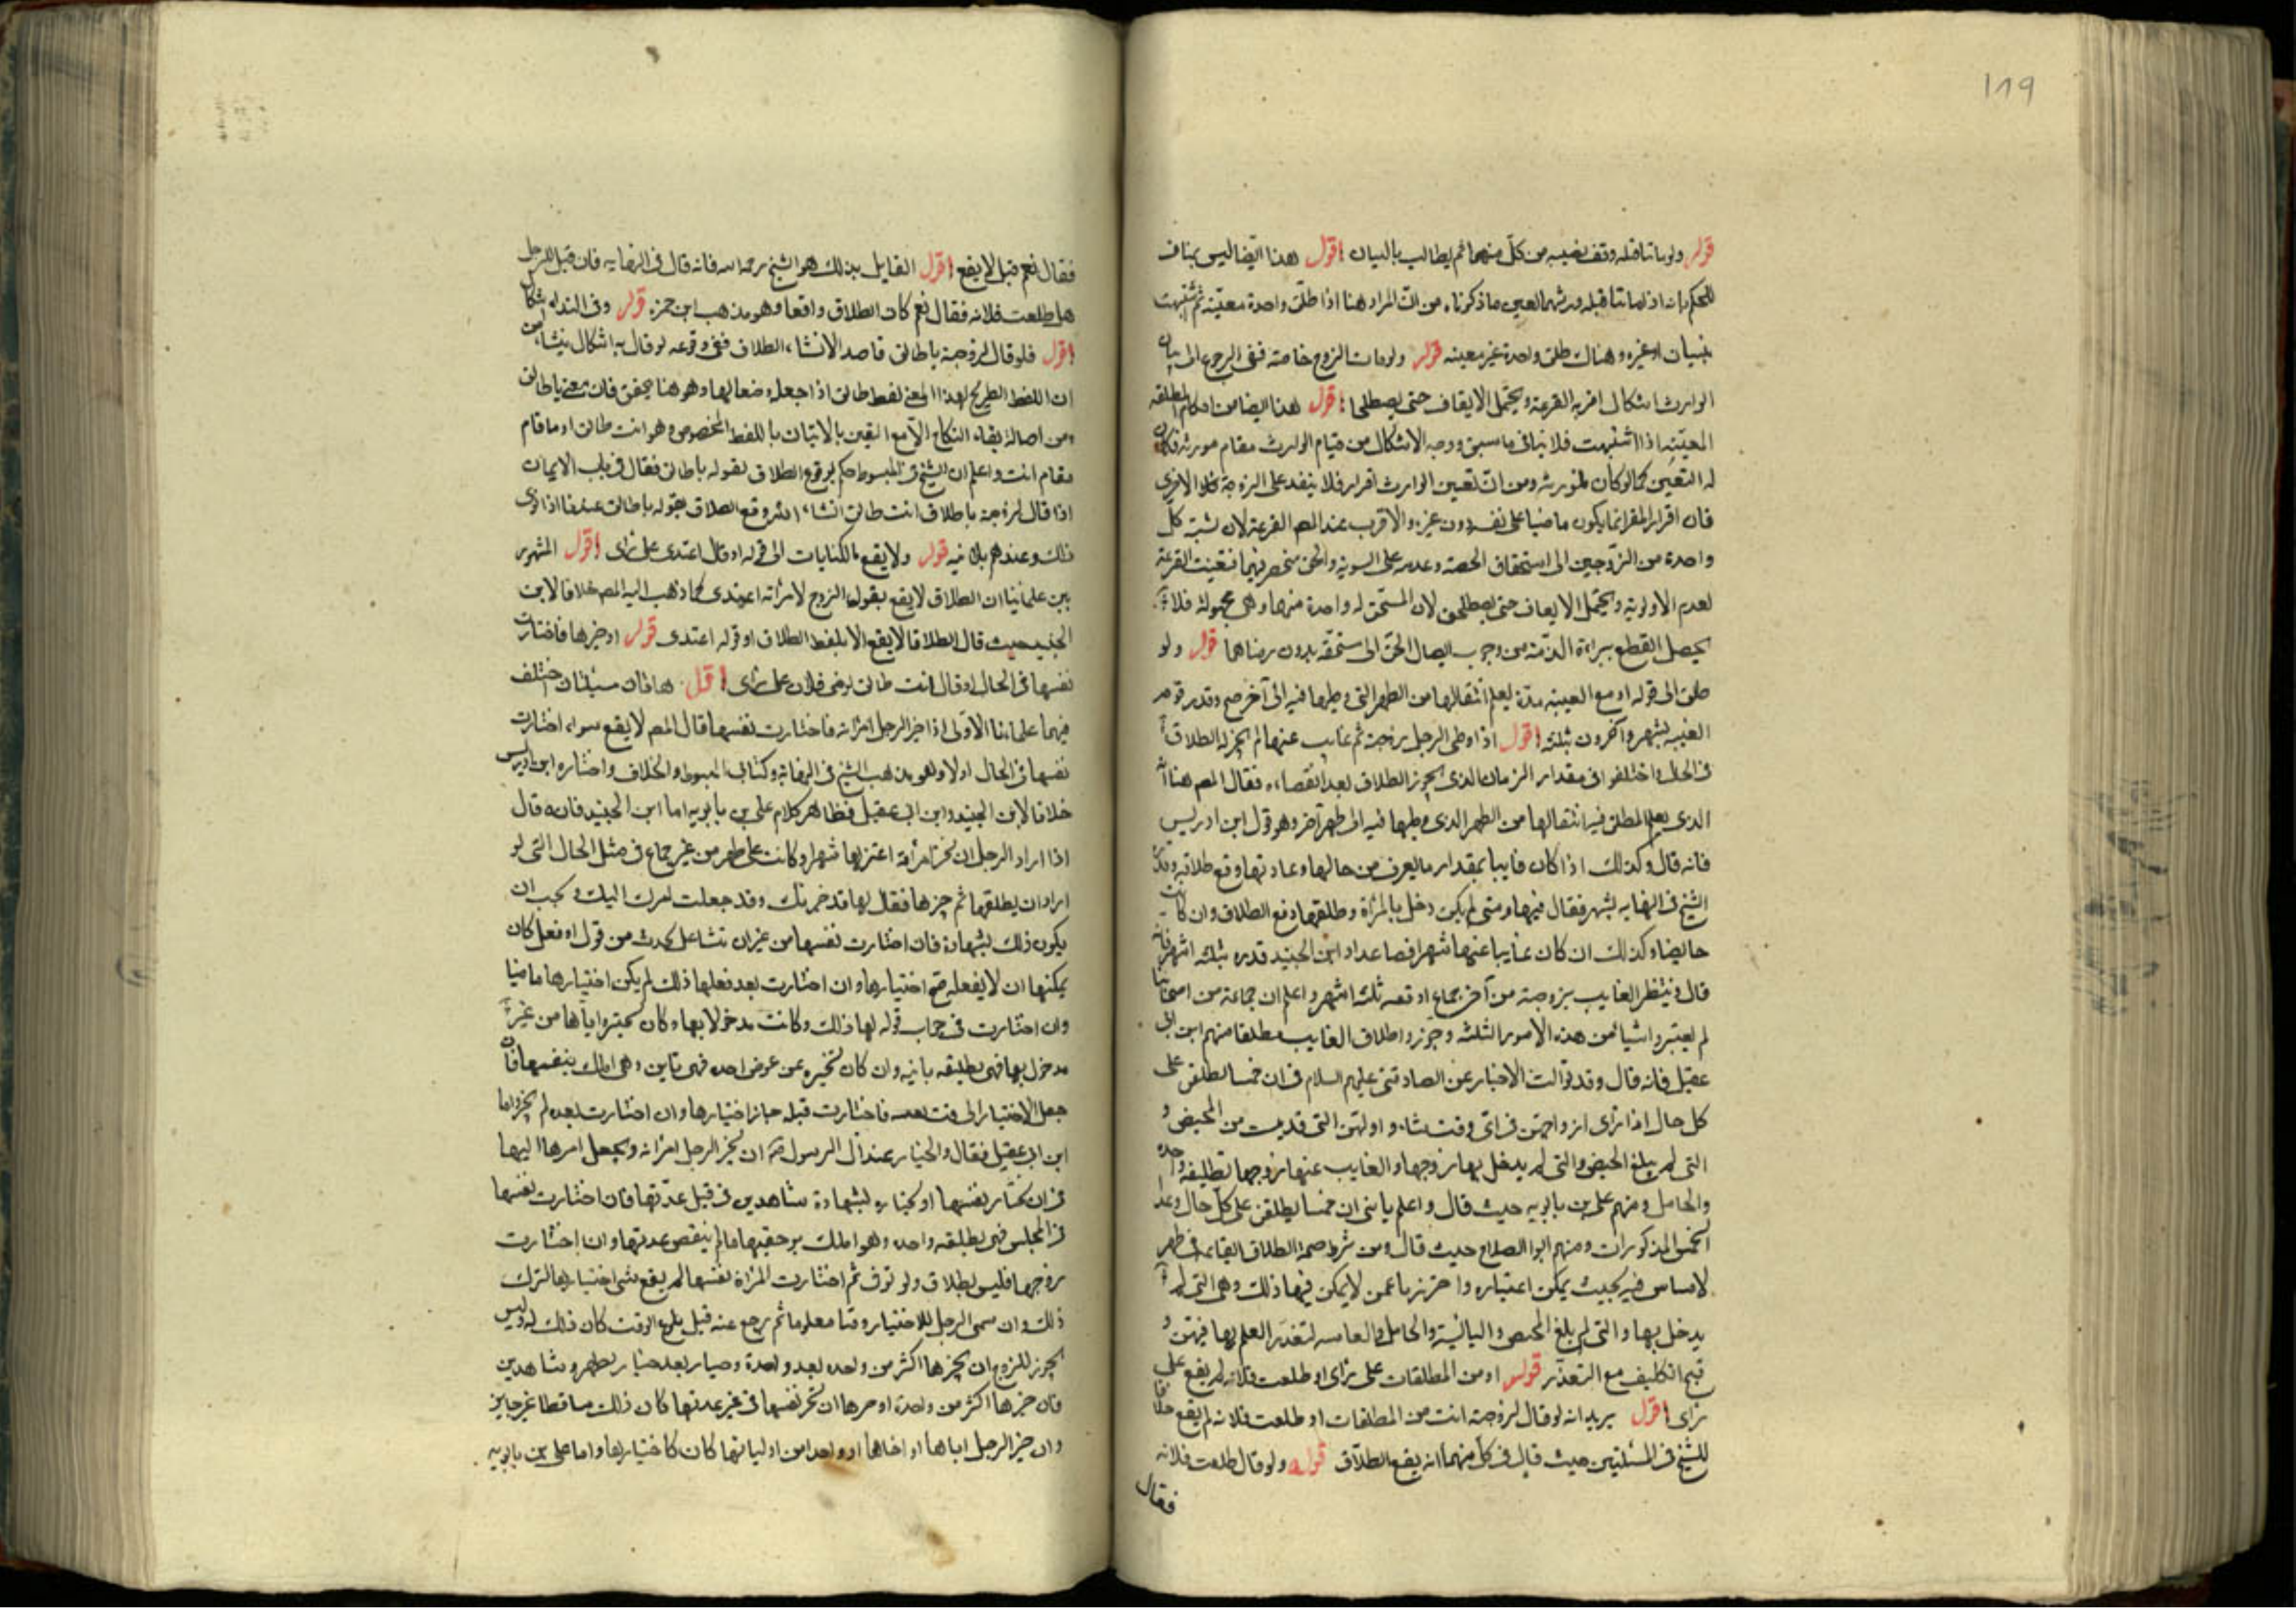 119
قوله ولو ماتتا قبله وقف نصيبه من كل منهما ثم يطالب بالبيان اقول هذا ايضا ليس بمناف
للحكم بانه اذا ماتتا قبله ورثهما لمعين ما ذكرناه من ان المراد هنا اذا طلق واحدة معينة ثم اشتبهت
بنسيان او غيره وهناك طلق واحدة غير معينه قوله ولو مات الزوج خاصة ففى الرجوع الى بيان
الوارث اشكال اقربه القرعة ويحتمل الايقاف حتى يصطلحا اقول هذا ايضا من احكام المطلقه
المعينه اذا اشتبهت فلا ينافى ما سبق ووجه الاشكال من قيام الوارث مقام مورثه فكان
له التعيين كما لو كان لمورثه ومن ان تعيين الوارث اقرار فلا ينفذ على الزوجة الاخرى
فان اقرار المقر انما يكون ماضيا على نفسه دون غيره والاقرب عند المص القرعة لان نسبة كل
واحدة من الزوجين الى استحقاق الحصه وعدمه على السوية والحق منحصر فيهما فتعينت القرعة
لعدم الاولوية ويحتمل الايقاف حتى يصطلحن لان المستحق له واحدة منهما وهى مجهولة فلا
يحصل القطع ببراءة الذمة من وجوب ايصال الحق الى مستحقه بدون رضاهما قوله ولو
طلق الى قوله او مع الغيبه مدة يعلم انتقالها من الطهر التى وطيها فيه الى آخر صح وقدر قوم
الغيبه بشهر وآخرون بثلثه اقول اذا وطى الرجل زوجته ثم غاب عنها لم يجز له الطلاق
فى الحال واختلفوا فى مقدار الزمان الذى يجوز الطلاق بعد انقضاءه فقال المص هنا انه
الذى يعلم المطلق فيه انتقالها من الطهر الذى وطيها فيه الى طهر آخر وهو قول ابن ادريس
فانه قال وكذلك اذا كان غايبا بمقدار ما يعرف من حالها وعادتها وقع طلاقه وقدره
الشيخ فى النهايه بشهر فقال فيها ومتى لم يكن دخل بالمراة وطلقها وقع الطلاق وان كانت
حايضا وكذلك ان كان غايبا عنها شهرا فصاعدا وابن الجنيد قدره بثلثه اشهر فانه
قال وينتظر الغايب بزوجته من آخر جماع اوقعه ثلثه اشهر واعلم ان جماعة من اصحابنا
لم يعتبروا شيا من هذه الامور الثلثه وجوزوا طلاق الغايب مطلقا منهم ابن ابى
عقيل فانه قال وقد تواترت الاخبار عن الصادقين عليهم السلام فى ان خمسا يطلقن على
كل حال اذا اراد ازواجهن فى اى وقت شاءوا وهن التى قد يئست من المحيض و
التى لم يبلغ الحيض والتى لم يدخل بها زوجها والغايب عنها زوجها تطليقه واحده
والحامل ومنهم على بن بابويه حيث قال واعلم يا بنى ان خمسا يطلقن على كل حال وعد
الخمس المذكورات ومنهم ابو الصلاح حيث قال ومن شرط صحة الطلاق ايقاعه فى طهر
لا مساس فيه بحيث يمكن اعتباره واحترزنا عمن لا يمكن فيها ذلك وهى التى لم
يدخل بها والتى لم يبلغ المحيض واليائسة والحامل والغايبه لتعذر العلم بها فيهن و
قبح التكليف مع التعذر قوله او من المطلقات على راى او طلقت فلانه لم يقع على
راى اقول يريد انه لو قال لزوجته انت من المطلقات او طلقت فلانه لم يقع خلافا
للشيخ فى المسئلتين حيث قال فى كل منهما انه يقع الطلاق قوله ولو قال طلقت فلانه
فقال
فقال نعم قيل لا يقع اقول القايل بذلك هو الشيخ رحمه الله فانه قال فى النهايه فان قيل للرجل
هل طلقت فلانه فقال نعم كان الطلاق واقعا وهو مذهب ابن حمزه قوله وفى النداء اشكال
اقول فلو قال لزوجته يا طالق قاصدا لانشاء الطلاق ففى وقوعه لو قال به اشكال ينشا من
ان اللفظ الصريح لهذا المعنى لفظ طالق اذا جعل وصفا لها وهو هنا محقق فان معنى يا طالق
ومن اصالة بقاء النكاح الا مع اليقين بالاتيان باللفظ المخصوص وهو انت طالق او ما قام
مقام انت واعلم ان الشيخ فى المبسوط حكم بوقوع الطلاق بقوله يا طالق فقال فى باب الايمان
اذا قال لزوجته يا طلاق انت طالق انشاء الله وقع الطلاق بقوله يا طالق عندنا اذا نوى
ذلك وعندهم بلا نيه قوله ولا يقع بالكنايات الى قوله او قال اعتدى على راى اقول المشهور
بين علمائنا ان الطلاق لا يقع بقول الزوج لامراته اعتدى كما ذهب اليه المص خلافا لابن
الجنيد حيث قال الطلاق لا يقع الا بلفظ الطلاق او قوله اعتدى قوله او خيرها فاختارت
نفسها فى الحال او قال انت طالق لرضى فلان على راى اقول هاتان مسئلتان اختلف
فيهما علمائنا الاولى اذا خير الرجل امراته فاختارت نفسها قال المص لا يقع سواء اختارت
نفسها فى الحال او لا وهو مذهب الشيخ فى النهاية وكتابى المبسوط والخلاف واختاره ابن ادريس
خلافا لابن الجنيد وابن ابى عقيل وظاهر كلام على بن بابويه اما ابن الجنيد فانه قال
اذا اراد الرجل ان يخير امراته اعتزلها شهرا وكانت على طهر من غير جماع فى مثل الحال التى لو
اراد ان يطلقها ثم خيرها فقال لها قد خيرتك وقد جعلت امرك اليك ويجب ان
يكون ذلك بشهادة فان اختارت نفسها من غير ان تتشاغل بحدث من قول او فعل كان
يمكنها ان لا يفعله صح اختيارها وان اختارت بعد فعلها ذلك لم يكن اختيارها ماضيا
وان اختارت فى جواب قوله لها ذلك وكانت مدخولا بها وكان تخييره اياها من غير
مدخول بها فهى تطليقه باينه وان كان تخييره عن عوض اخذه فهى باين وهى املك بنفسها فان
جعل الاختيار الى وقت بعينه فاختارت قبله جاز اختيارها وان اختارت بعده لم يجز واما
ابن ابى عقيل فقال والخيار عند آل الرسول ان يخير الرجل امراته ويجعل امرها اليها
فى ان تختار نفسها او تختاره بشهادة شاهدين فى قبل عدتها فان اختارت نفسها
فى المجلس فهى تطليقه واحده وهو املك برجعتها ما لم ينقض عدتها وان اختارت
زوجها فليس بطلاق ولو تفرق ثم اختارت المراة نفسها لم يقع شى اختيارها لترك
ذلك وان سمى الرجل للاختيار وقتا معلوما ثم رجع عنه قبل بلوغ الوقت كان ذلك له وليس
يجوز للزوج ان يخيرها اكثر من واحده بعد واحدة وخيار بعد خيار بطهر وشاهدين
فان خيرها اكثر من واحدة او خيرها ان تخير نفسها فى غير عدتها كان ذلك ساقطا غير جايز
وان خير الرجل اباها او اخاها او واحدا من اوليائها كان كاختيارها واما على بن بابويه